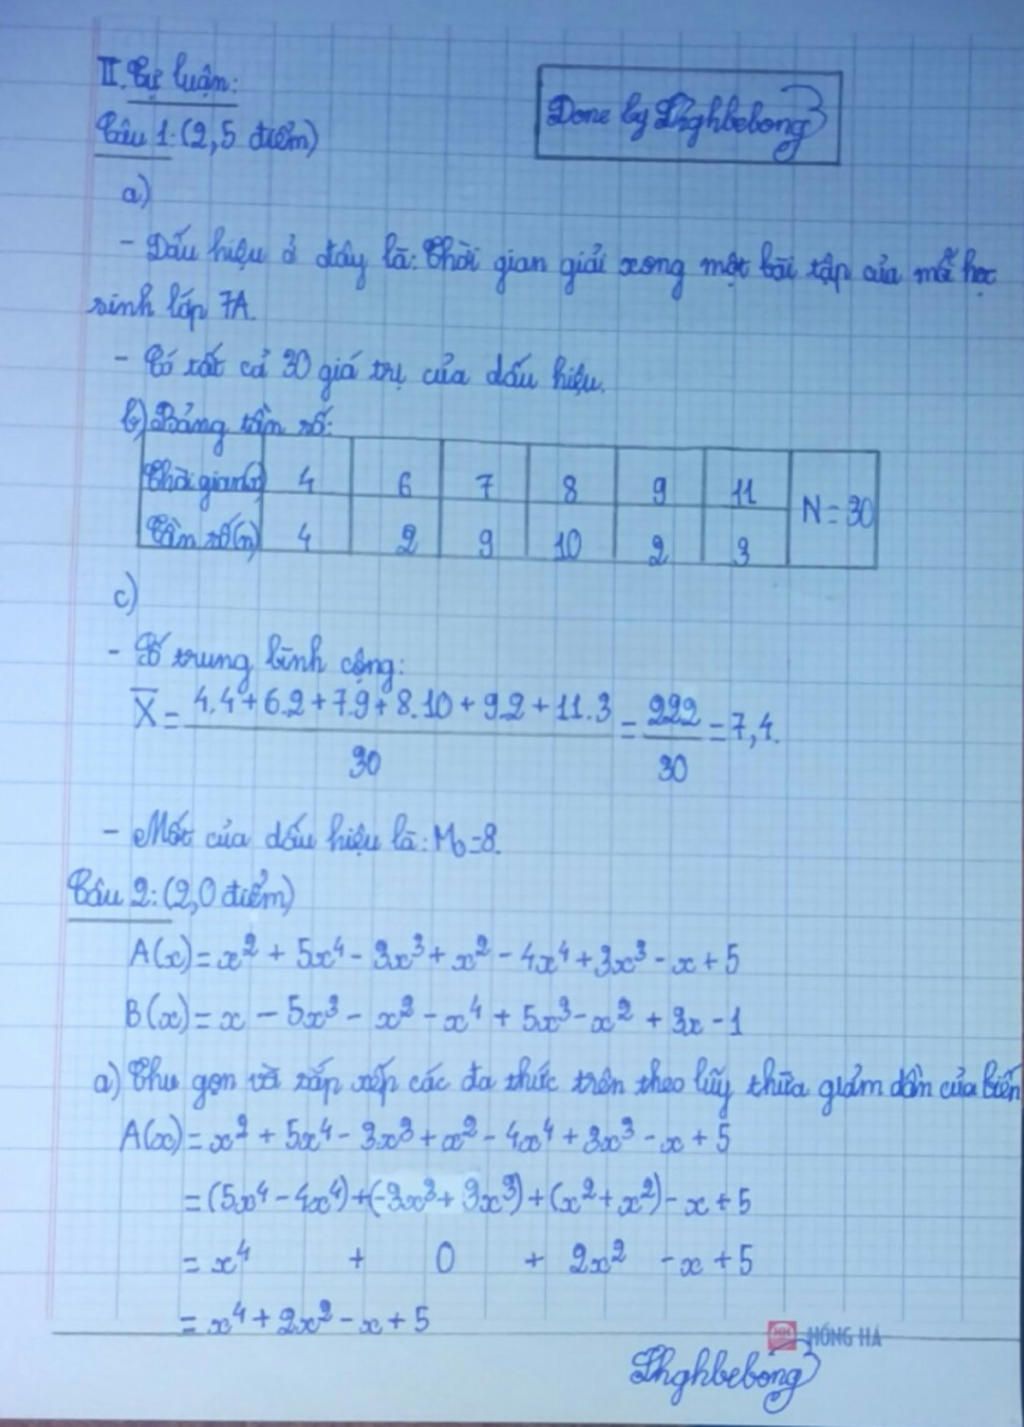 II. Tự luận:
Done by Thghbebong
Câu 1: (2,5 điểm)
a)
- Dấu hiệu ở đây là: Thời gian giải xong một bài tập của mỗi học
sinh lớp 7A.
- Có tất cả 30 giá trị của dấu hiệu.
b) Bảng tần số:
Thời gian(x) 4 6 7 8 9 11 N = 30
Tần số(n) 4 2 9 10 2 3
c)
- Số trung bình cộng:
X̅ = (4.4 + 6.2 + 7.9 + 8.10 + 9.2 + 11.3)/30 = 222/30 = 7,4.
- Mốt của dấu hiệu là: M₀ = 8.
Câu 2: (2,0 điểm)
A(x) = x² + 5x⁴ - 3x³ + x² - 4x⁴ + 3x³ - x + 5
B(x) = x - 5x³ - x² - x⁴ + 5x³ - x² + 3x - 1
a) Thu gọn và sắp xếp các đa thức trên theo lũy thừa giảm dần của biến
A(x) = x² + 5x⁴ - 3x³ + x² - 4x⁴ + 3x³ - x + 5
= (5x⁴ - 4x⁴) + (-3x³ + 3x³) + (x² + x²) - x + 5
= x⁴ + 0 + 2x² - x + 5
= x⁴ + 2x² - x + 5
HH HỒNG HÀ
Thghbebong